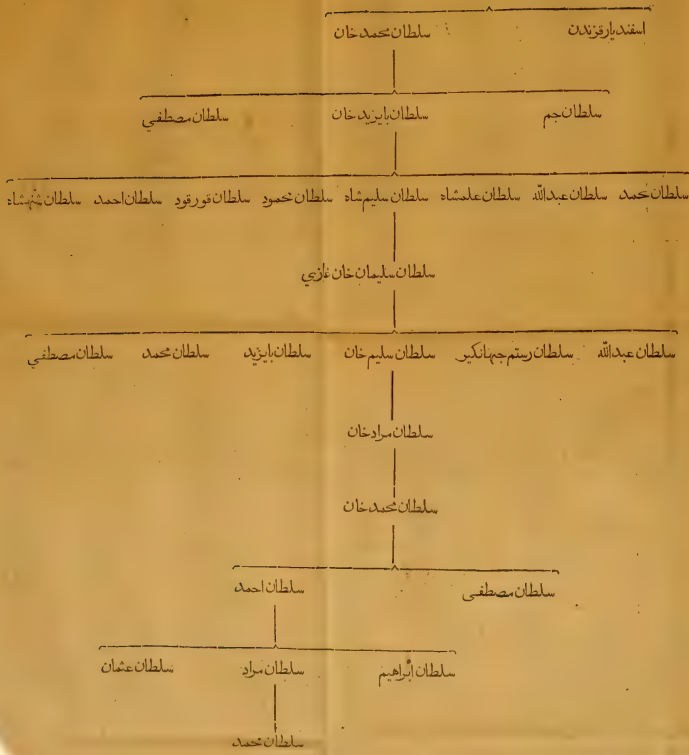 اسفنديار قزندن سلطان محمد خان
سلطان جم سلطان بايزيد خان سلطان مصطفي
سلطان محمد سلطان عبدالله سلطان علمشاه سلطان سليم شاه سلطان محمود سلطان قورقود سلطان احمد سلطان شهنشاه
سلطان سليمان خان غازي
سلطان عبدالله سلطان رستم جهانكير سلطان سليم خان سلطان بايزيد سلطان محمد سلطان مصطفي
سلطان مراد خان
سلطان محمد خان
سلطان مصطفى سلطان احمد
سلطان ابراهيم سلطان مراد سلطان عثمان
سلطان محمد